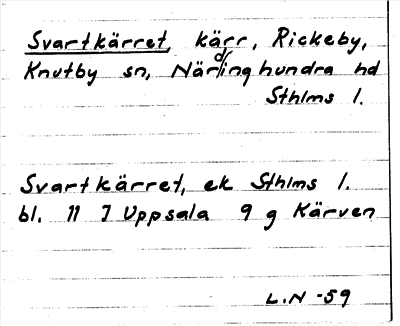 Svartkärret, kärr, Rickeby,
Knutby sn, Närdinghundra hd
Sthlms l.
Svartkärret, ek Sthlms l.
bl. 11 I Uppsala 9 g Kärven
L.N -59